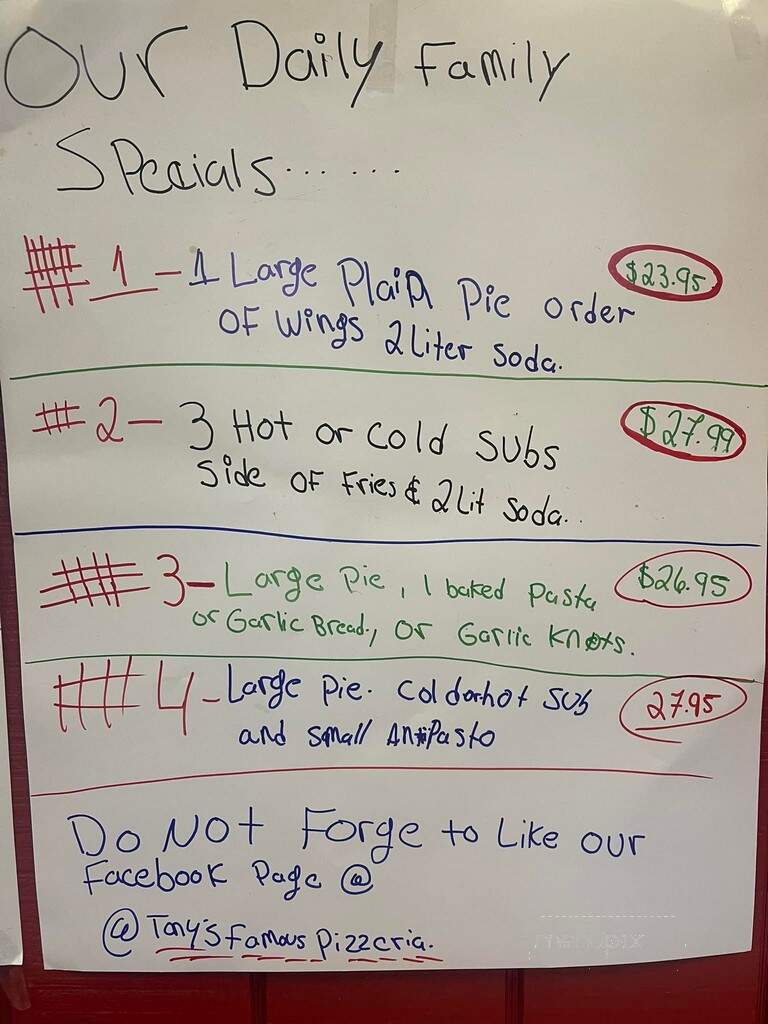 Our Daily Family
Specials.......
# 1 - 1 Large Plain Pie order $23.95
OF Wings 2 Liter Soda.
# 2 - 3 Hot or Cold Subs $27.99
Side OF Fries & 2 Lit Soda..
# 3 - Large Pie, 1 baked Pasta $26.95
or Garlic Bread, or Garlic Knots.
# 4 - Large Pie. Cold or hot Sub 27.95
and Small Antipasto
Do Not Forge to Like our
Facebook Page @
@ Tony's Famous Pizzeria.
menupix